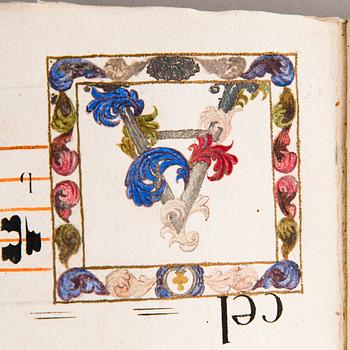 cel
A